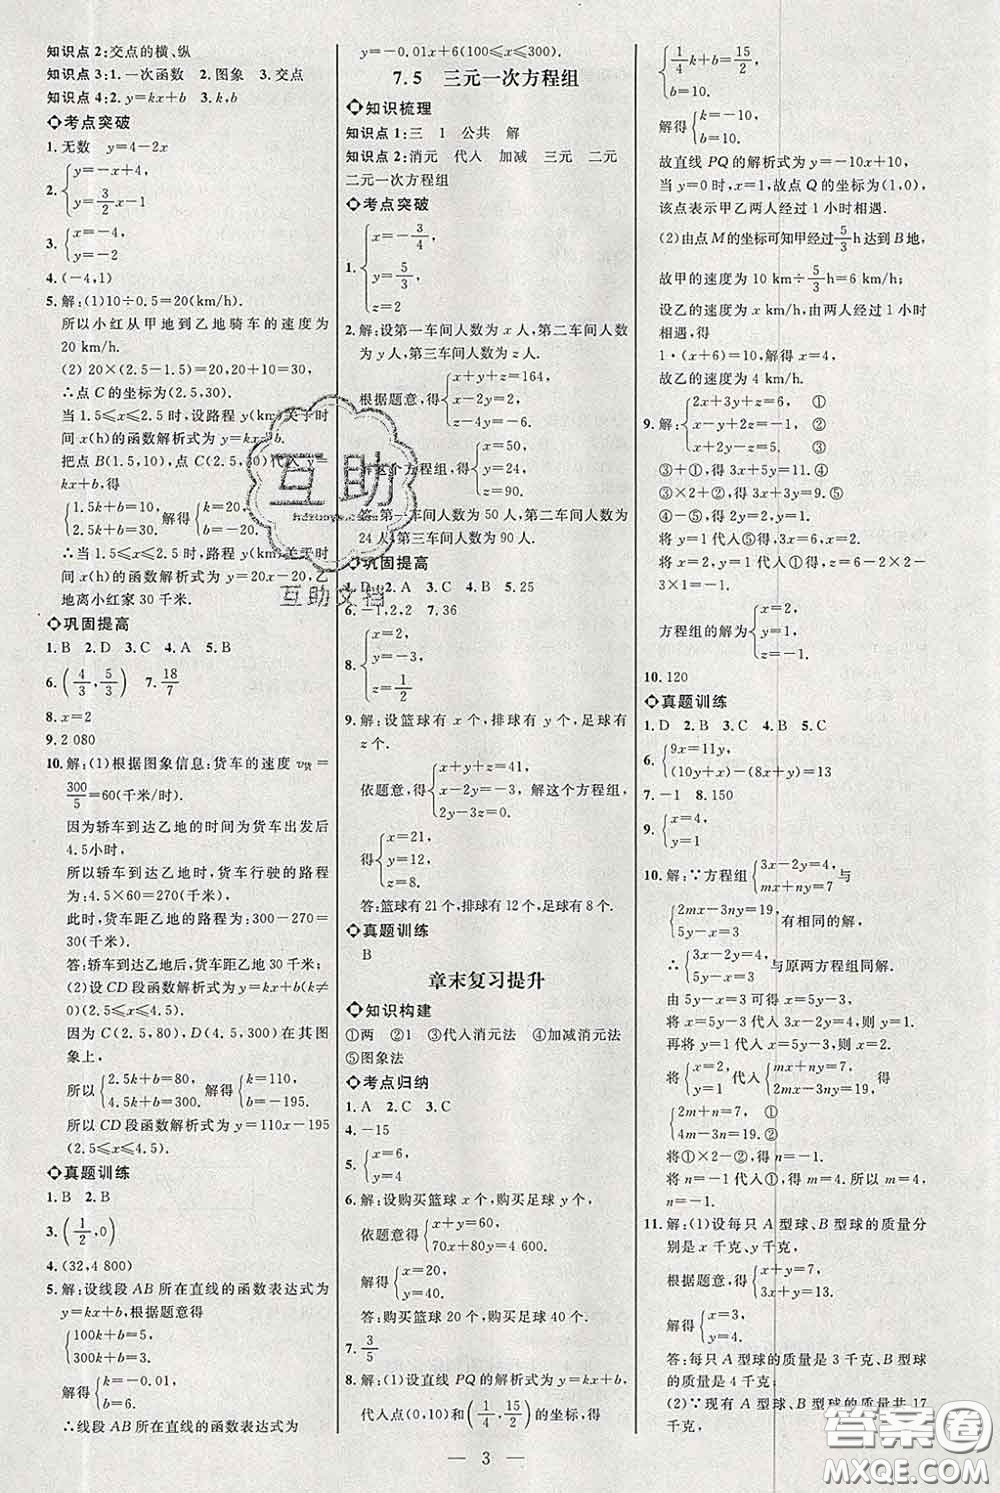 知识点 2:交点的横、纵
知识点 3:1.一次函数 2.图象 3.交点
知识点 4:2.y=kx+b 3.k,b
考点突破
1.无数 y=4-2x
2.{y=-x+4,
y=3/2x-1
3.{x=-4,
y=-2
4.(-4,1)
5.解:(1)10÷0.5=20(km/h).
所以小红从甲地到乙地骑车的速度为
20 km/h.
(2) 20×(2.5-1.5)=20,20+10=30,
∴点 C 的坐标为(2.5,30).
当 1.5≤x≤2.5 时,设路程 y(km)关于时
间 x(h)的函数解析式为 y=kx+b.
把点 B(1.5,10),点 C(2.5,30)代入 y=
kx+b,得
{1.5k+b=10, 解得{k=20,
2.5k+b=30. b=-20.
∴当 1.5≤x≤2.5 时,路程 y(km)关于时
间 x(h)的函数解析式为 y=20x-20,乙
地离小红家 30 千米.
巩固提高
1.B 2.D 3.C 4.A 5.B
6.(4/3,5/3) 7.18/7
8.x=2
9.2 080
10.解:(1)根据图象信息:货车的速度 v货=
300/5=60(千米/时).
因为轿车到达乙地的时间为货车出发后
4.5小时,
所以轿车到达乙地时,货车行驶的路程
为:4.5×60=270(千米).
此时,货车距乙地的路程为:300-270=
30(千米).
答:轿车到达乙地后,货车距乙地 30 千米.
(2)设 CD 段函数解析式为 y=kx+b(k≠
0)(2.5≤x≤4.5).
因为 C(2.5,80),D(4.5,300)在其图
象上,
所以{2.5k+b=80, 解得{k=110,
4.5k+b=300. b=-195.
所以 CD 段函数解析式为 y=110x-195
(2.5≤x≤4.5).
真题训练
1.B 2.B
3.(1/2,0)
4.(32,4 800)
5.解:设线段 AB 所在直线的函数表达式为
y=kx+b,根据题意得
{100k+b=5,
300k+b=3.
解得{k=-0.01,
b=6.
∴线段 AB 所在直线的函数表达式为
y=-0.01x+6(100≤x≤300).
7.5 三元一次方程组
知识梳理
知识点 1:三 1 公共 解
知识点 2:消元 代入 加减 三元 二元
二元一次方程组
考点突破
1.{x=-3/4,
y=5/3,
z=2
2.解:设第一车间人数为 x 人,第二车间人数
为 y 人,第三车间人数为 z 人.
根据题意,得{x+y+z=164,
x-2y=2,
z-4y=-6.
解这个方程组,得{x=50,
y=24,
z=90.
答:第一车间人数为 50 人,第二车间人数为
24 人,第三车间人数为 90 人.
巩固提高
1.D 2.A 3.C 4.C 5.25
6.-1,2,2 7.36
8.{x=2,
y=-3,
z=1/2
9.解:设篮球有 x 个,排球有 y 个,足球有
z 个.
依题意,得{x+y+z=41,
x-2y=-3, 解这个方程组,
2y-3z=0.
得{x=21,
y=12,
z=8.
答:篮球有 21 个,排球有 12 个,足球有 8 个.
真题训练
B
章末复习提升
知识构建
①两 ②1 ③代入消元法 ④加减消元法
⑤图象法
考点归纳
1.A 2.C 3.C
4.-15
5.{x=6,
y=4
6.解:设购买篮球 x 个,购买足球 y 个,
依题意得{x+y=60,
70x+80y=4 600.
解得{x=20,
y=40.
答:购买篮球 20 个,购买足球 40 个.
7.3/5
8.解:(1)设直线 PQ 的解析式为 y=kx+b,
代入点(0,10)和(1/4,15/2)的坐标,得
{1/4k+b=15/2,
b=10.
解得{k=-10,
b=10.
故直线 PQ 的解析式为 y=-10x+10,
当 y=0 时,x=1,故点 Q 的坐标为(1,0),
该点表示甲乙两人经过 1 小时相遇.
(2)由点 M 的坐标可知甲经过5/3h 达到 B 地,
故甲的速度为 10 km÷5/3h=6 km/h;
设乙的速度为 x km/h,由两人经过 1 小时
相遇,得
1·(x+6)=10,解得 x=4,
故乙的速度为 4 km/h.
9.解:{2x+3y+z=6, ①
x-y+2z=-1, ②
x+2y-z=5. ③
③+①,得 3x+5y=11. ④
③×2+②,得 3x+3y=9. ⑤
④-⑤,得 2y=2,y=1.
将 y=1 代入⑤得:3x=6.
x=2.
将 x=2,y=1 代入①得,z=6-2×2-
3×1=-1.
方程组的解为{x=2,
y=1,
z=-1.
10.120
真题训练
1.D 2.B 3.C 4.B 5.C
6.{9x=11y,
(10y+x)-(8x+y)=13
7.-1 8.150
9.{x=4,
y=1
10.解:∵方程组{3x-2y=4, 与
mx+ny=7
{2mx-3ny=19, 有相同的解,
5y-x=3
∴{3x-2y=4, 与原两方程组同解.
5y-x=3
由 5y-x=3 可得:x=5y-3,
将 x=5y-3 代入 3x-2y=4,则 y=1.
再将 y=1 代入 x=5y-3,则 x=2.
将{x=2, 代入{mx+ny=7, 得
y=1 2mx-3ny=19,
{2m+n=7, ①
4m-3n=19. ②
将①×2-②,得 n=-1.
将 n=-1 代入①,得 m=4. 所以 m=4,
n=-1.
11.解:(1)设每只 A 型球、B 型球的质量分
别是 x 千克、y 千克,
根据题意可得:{x+y=7,
3x+y=13,
解得{x=3,
y=4.
答:每只 A 型球的质量是 3 千克、B 型球
的质量是 4 千克;
(2)∵现有 A 型球、B 型球的质量共 17
千克,
3
互助
互助文档
答案圈
MXQE.COM